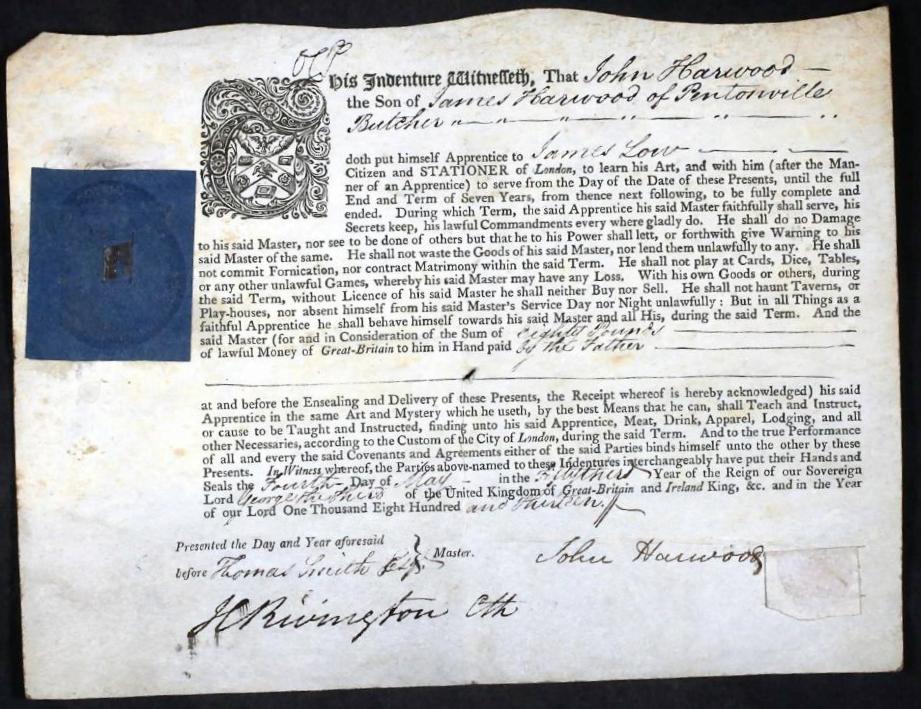 This Indenture Witnesseth, That John Harwood
the Son of James Harwood of Pentonville
Butcher
doth put himself Apprentice to James Low
Citizen and STATIONER of London, to learn his Art, and with him (after the Man-
ner of an Apprentice) to serve from the Day of the Date of these Presents, until the full
End and Term of Seven Years, from thence next following, to be fully complete and
ended. During which Term, the said Apprentice his said Master faithfully shall serve, his
Secrets keep, his lawful Commandments every where gladly do. He shall do no Damage
to his said Master, nor see to be done of others but that he to his Power shall lett, or forthwith give Warning to his
said Master of the same. He shall not waste the Goods of his said Master, nor lend them unlawfully to any. He shall
not commit Fornication, nor contract Matrimony within the said Term. He shall not play at Cards, Dice, Tables,
or any other unlawful Games, whereby his said Master may have any Loss. With his own Goods or others, during
the said Term, without Licence of his said Master he shall neither Buy nor Sell. He shall not haunt Taverns, or
Play-houses, nor absent himself from his said Master's Service Day nor Night unlawfully: But in all Things as a
faithful Apprentice he shall behave himself towards his said Master and all His, during the said Term. And the
said Master (for and in Consideration of the Sum of eighty Pounds
of lawful Money of Great-Britain to him in Hand paid by the Father
at and before the Ensealing and Delivery of these Presents, the Receipt whereof is hereby acknowledged) his said
Apprentice in the same Art and Mystery which he useth, by the best Means that he can, shall Teach and Instruct,
or cause to be Taught and Instructed, finding unto his said Apprentice, Meat, Drink, Apparel, Lodging, and all
other Necessaries, according to the Custom of the City of London, during the said Term. And to the true Performance
of all and every the said Covenants and Agreements either of the said Parties binds himself unto the other by these
Presents. In Witness whereof, the Parties above-named to these Indentures interchangeably have put their Hands and
Seals the Fourth Day of May in the Year of the Reign of our Sovereign
Lord George the Third of the United Kingdom of Great-Britain and Ireland King, &c. and in the Year
of our Lord One Thousand Eight Hundred and Thirteen.
Presented the Day and Year aforesaid
before Thomas Smith Esq. Master.
John Harwood
H Rivington Clk